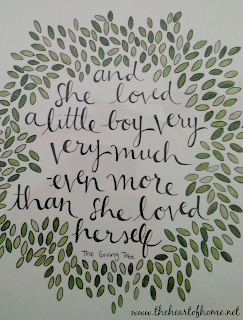 and
she loved
a little boy very
very much
-even more
than she loved
herself
The Giving Tree
www.theheartofhome.net